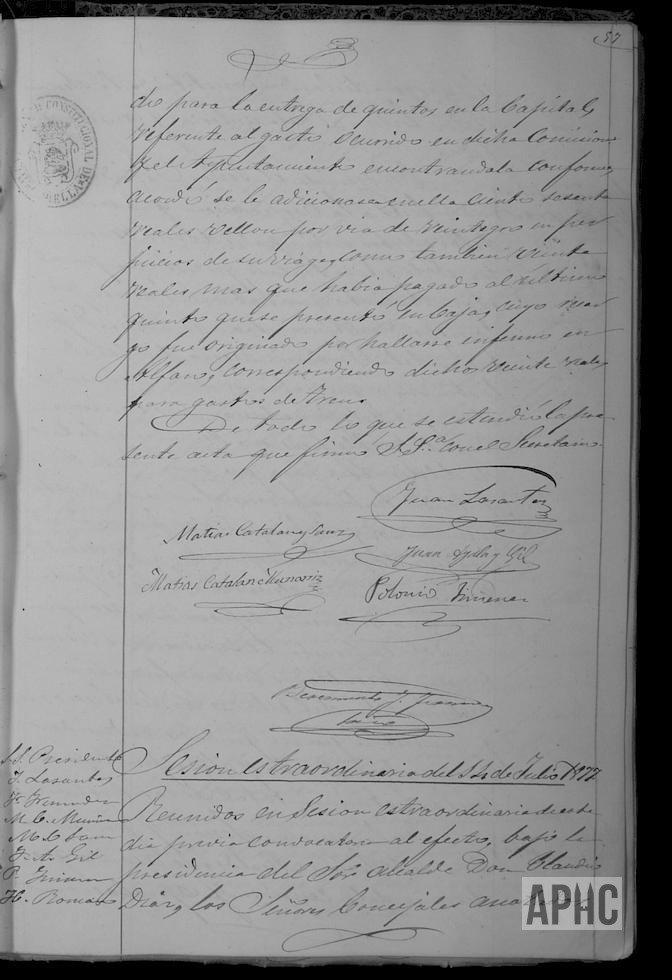 57
do para la entrega de quintos en la Capital,
referente al gasto ocurrido en dicha Comision
y el Ayuntamiento encontrandola conforme,
acordó se le adicionase en ella ciento sesenta
reales vellon por via de reintegro en per
juicios de su viage, como tambien veinte
reales mas que habia pagado al ultimo
quinto que se presentó en Caja, cuyo
go fue originado por hallarse enfermo en
Alfaro, correspondiendo dichos veinte reales
para gastos de tren.
De todo lo que se estendió la pre
sente acta que firma S.S.ª con el Secretario.
Juan Lasantas
Matias Catalan y Sanz
Juan Ayala y Gil
Matias Catalan Munarriz
Polonio Jimenez
J.
Sesion estraordinaria del 14 de Julio 1877
S.S. Presidente
J. Lasantas
M. C. Munar
M. C. Sanz
J. A. Gil
P. Jimenez
H. Romano
Reunidos en Sesion estraordinaria de este
dia previa convocatoria al efecto, bajo la
presidencia del Sor. Alcalde Don Claudio
Diaz, y los Señores Concejales anotados
CONSTITUCIONAL DE
APHC